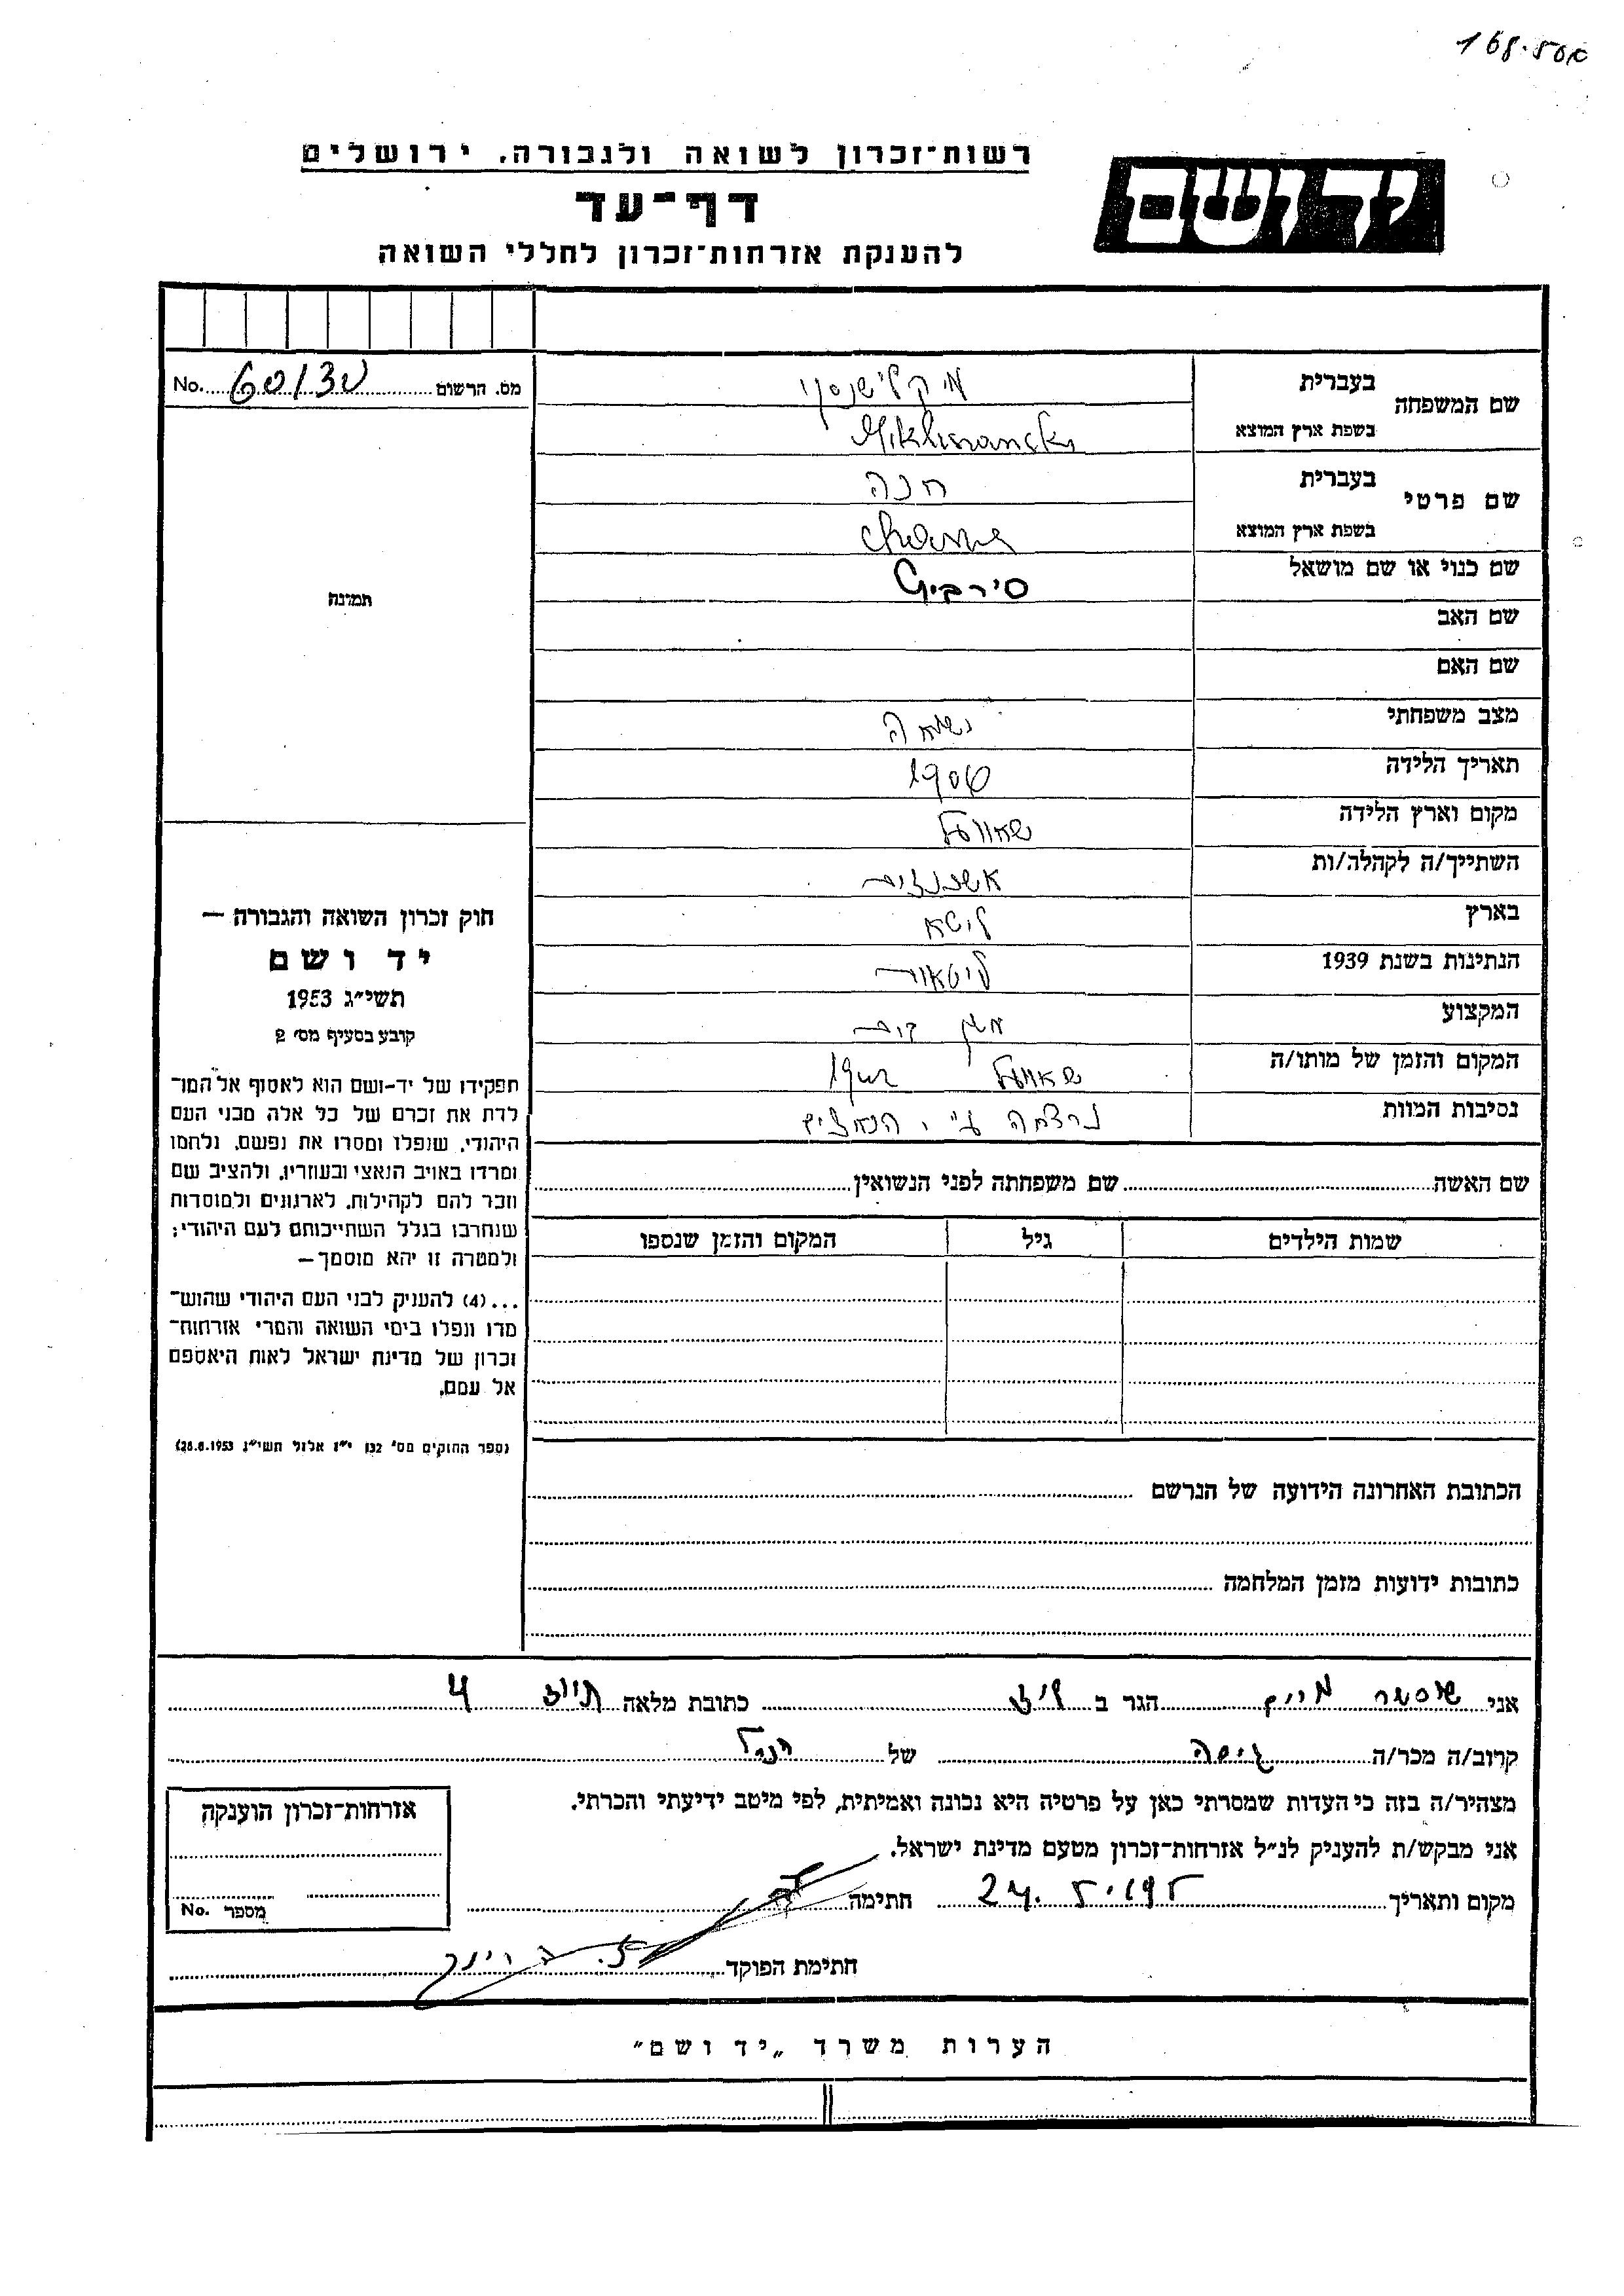 168.500
יד ושם
רשות־זכרון לשואה ולגבורה. ירושלים
דף־עד
להענקת אזרחות־זכרון לחללי השואה
מס. הרשום No. 60130
שם המשפחה
בעברית מיקלישנסקי
בשפת ארץ המוצא
שם פרטי
בעברית חנה
בשפת ארץ המוצא
שם כנוי או שם מושאל
שם האב
שם האם
מצב משפחתי נשואה
תאריך הלידה
מקום וארץ הלידה שאוועל
השתייך/ה לקהלה/ות אשכנזים
בארץ ליטא
הנתינות בשנת 1939 ליטאית
המקצוע
המקום והזמן של מותו/ה שאוועל
נסיבות המוות נרצחה ע"י הנאצים
תמונה
חוק זכרון השואה והגבורה —
יד ושם
תשי״ג 1953
קובע בסעיף מס׳ 2
תפקידו של יד-ושם הוא לאסוף אל המו־
לדת את זכרם של כל אלה מבני העם
היהודי, שנפלו ומסרו את נפשם, נלחמו
ומרדו באויב הנאצי ובעוזריו, ולהציב שם
וזכר להם לקהילות, לארגונים ולמוסדות
שנחרבו בגלל השתייכותם לעם היהודי;
ולמטרה זו יהא מוסמך—
...(4) להעניק לבני העם היהודי שהוש־
מדו ונפלו בימי השואה והמרי אזרחות־
זכרון של מדינת ישראל לאות היאספם
אל עמם.
(ספר החוקים מס׳ 132 י״ז אלול תשי״ג 28.8.1953)
שם האשה שם משפחתה לפני הנשואין
שמות הילדים גיל המקום והזמן שנספו
הכתובת האחרונה הידועה של הנרשם
כתובות ידועות מזמן המלחמה
אני הגר ב כתובת מלאה
קרוב/ה מכר/ה גיסה של הנ"ל
מצהיר/ה בזה כי העדות שמסרתי כאן על פרטיה היא נכונה ואמיתית, לפי מיטב ידיעתי והכרתי.
אני מבקש/ת להעניק לנ״ל אזרחות־זכרון מטעם מדינת ישראל.
מקום ותאריך חתימה
חתימת הפוקד
אזרחות־זכרון הוענקה
מספר No.
הערות משרד „יד ושם״